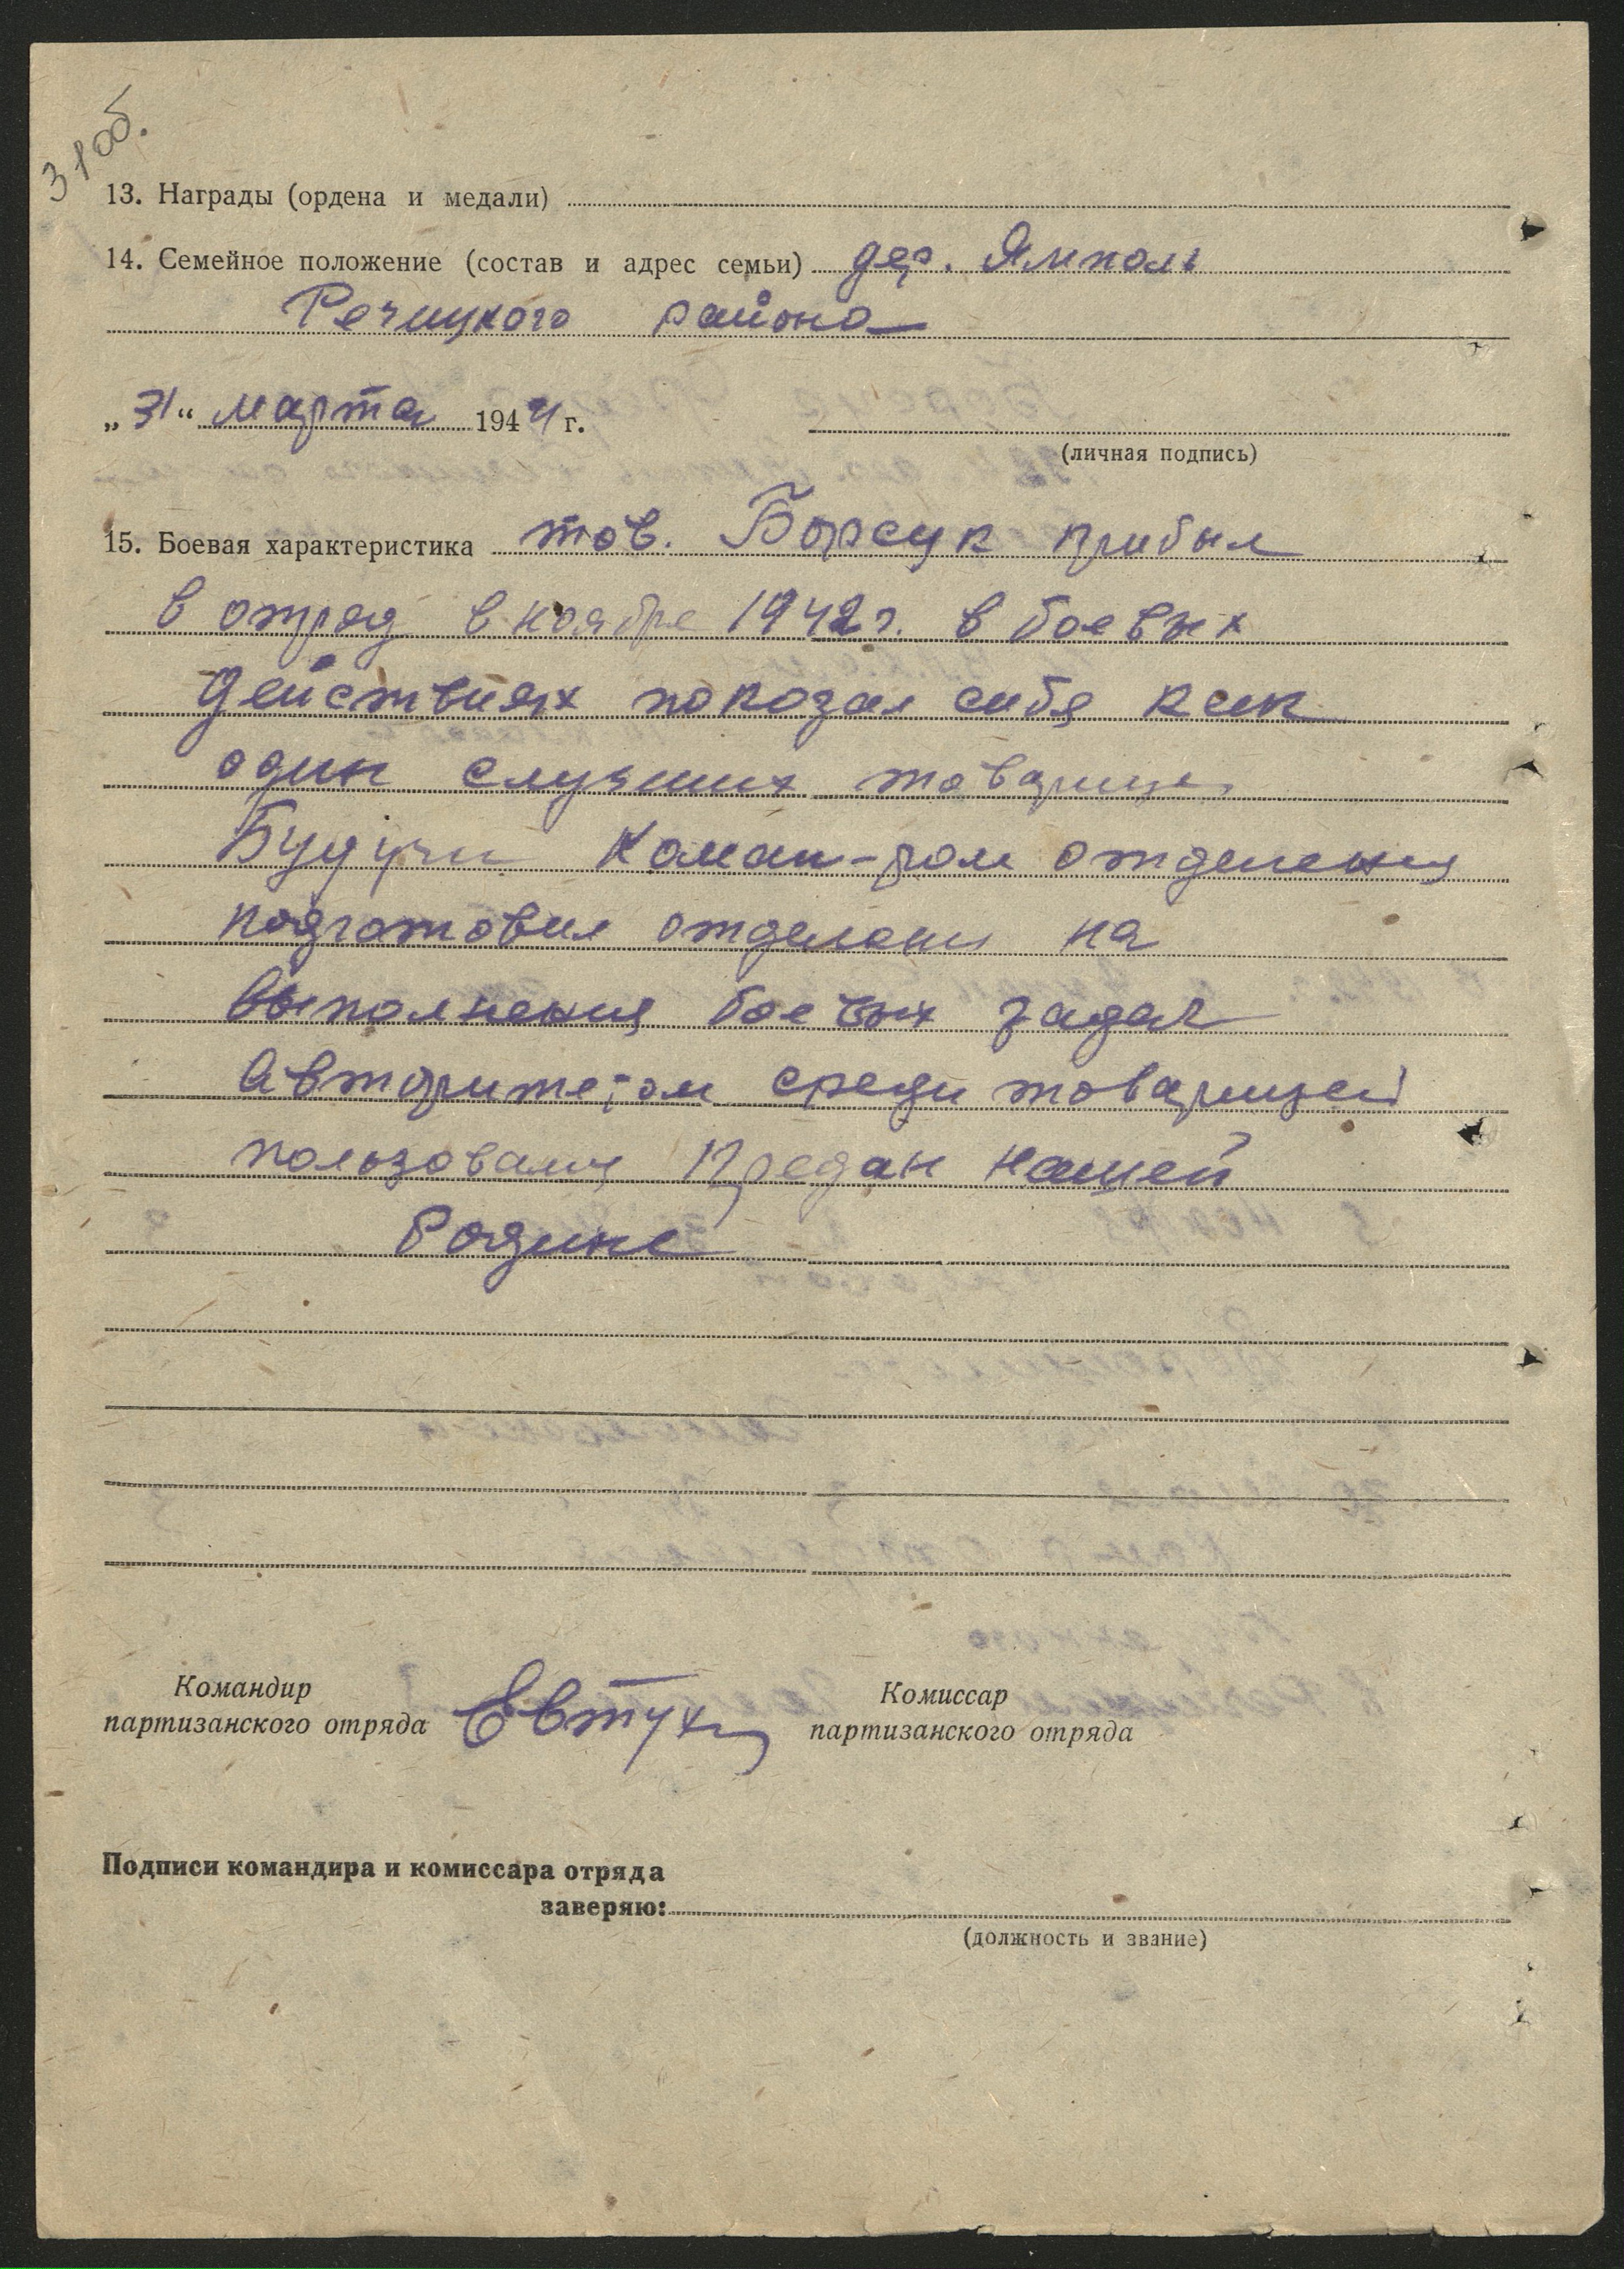 31об.
13. Награды (ордена и медали)
14. Семейное положение (состав и адрес семьи) дер. Ямполь
Речицкого района
„31“ марта 1944 г.
(личная подпись)
15. Боевая характеристика тов. Борсук прибыл
в отряд в ноябре 1942 г. в боевых
действиях показал себя как
один случших товарищ
Будучи коман-ром отделения
подготовил отделени на
выполнения боевых задач
Авторитетом среди товарищей
пользовался Предан нашей
Родине
Командир
партизанского отряда Евтух
Комиссар
партизанского отряда
Подписи командира и комиссара отряда
заверяю:
(должность и звание)